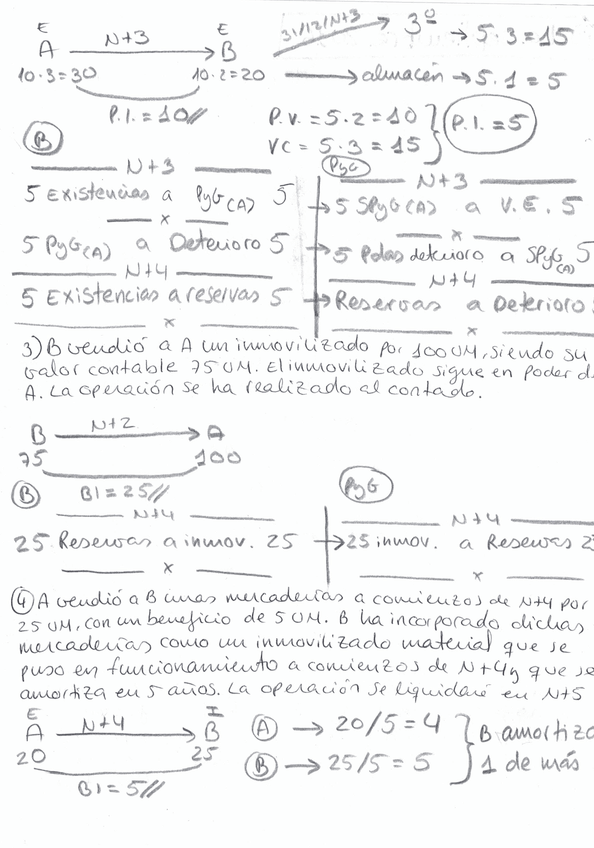 E E
A N+3 B 31/12/N+3 3º → 5·3=15
10·3=30 10·2=20 → almacén → 5·1=5
P.I.=10// P.V.=5·2=10 P.I.=5
VC=5·3=15
B PyG
N+3 N+3
5 Existencias a PyG(A) 5 → 5 SPyG(A) a V.E. 5
x x
5 PyG(A) a Deterioro 5 → 5 Pdas deterioro a SPyG(A) 5
N+4 N+4
5 Existencias a reservas 5 → Reservas a Deterioro
x x
3) B vendió a A un inmovilizado por 100 UM, siendo su
valor contable 75 UM. El inmovilizado sigue en poder d
A. La operación se ha realizado al contado.
B N+2 A
75 100
B BI=25// PyG
N+4 N+4
25 Reservas a inmov. 25 → 25 inmov. a Reservas 2
x x
4 A vendió a B unas mercaderías a comienzos de N+4 por
25 UM, con un beneficio de 5 UM. B ha incorporado dichas
mercaderías como un inmovilizado material que se
puso en funcionamiento a comienzos de N+4 y que se
amortiza en 5 años. La operación se liquidará en N+5
E I
A N+4 B A → 20/5=4 B amortiza
20 25 B → 25/5=5 1 de más
BI=5//